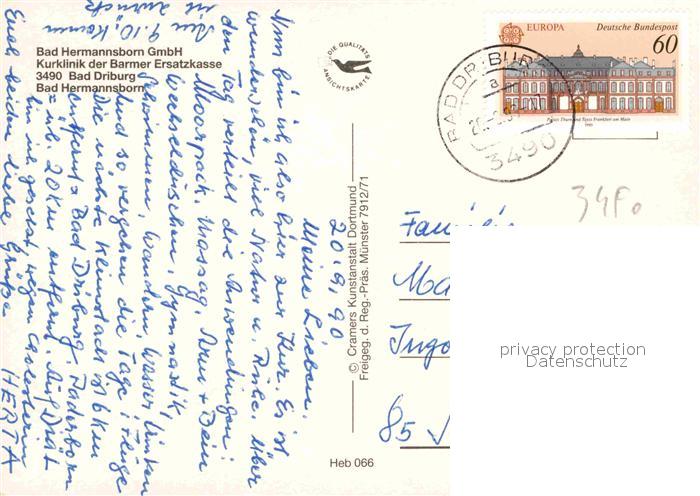 Bad Hermannsborn GmbH
Kurklinik der Barmer Ersatzkasse
3490 Bad Driburg
Bad Hermannsborn
DIE QUALITÄTS
ANSICHTSKARTE
EUROPA
Deutsche Bundespost
60
Palais Thurn und Taxis Frankfurt am Main
1990
BAD DRIBURG
a
3490
34Fo
20.9.90
Meine Lieben.
Nun bin ich also hier zur Kur. Es ist
wunderschön, viel Natur u. Ruhe. Über
den Tag verteilt die Anwendungen:
Moorpack, Massag, Arm + Bein
Wechselduschen, Gymnastik,
Schwimmen, Wandern, Wasser trinken
und so vergehen die Tage i. Fluge
Die nächste Kleinstadt ist 6 km
entfernt = Bad Driburg. Paderborn
= üb. 20 km entfernt. Auf Diät
bin ich gesetzt wegen Cholesterin
Euch beiden liebe Grüße HERTA
Am 9.10. komme
ich zurück
© Cramers Kunstanstalt Dortmund
Freigeg. d. Reg.-Präs. Münster 7912/71
Heb 066
Familie
Ma
Ingo
85
privacy protection
Datenschutz